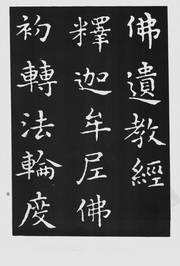 佛遺教經
釋迦牟尼佛
初轉法輪度